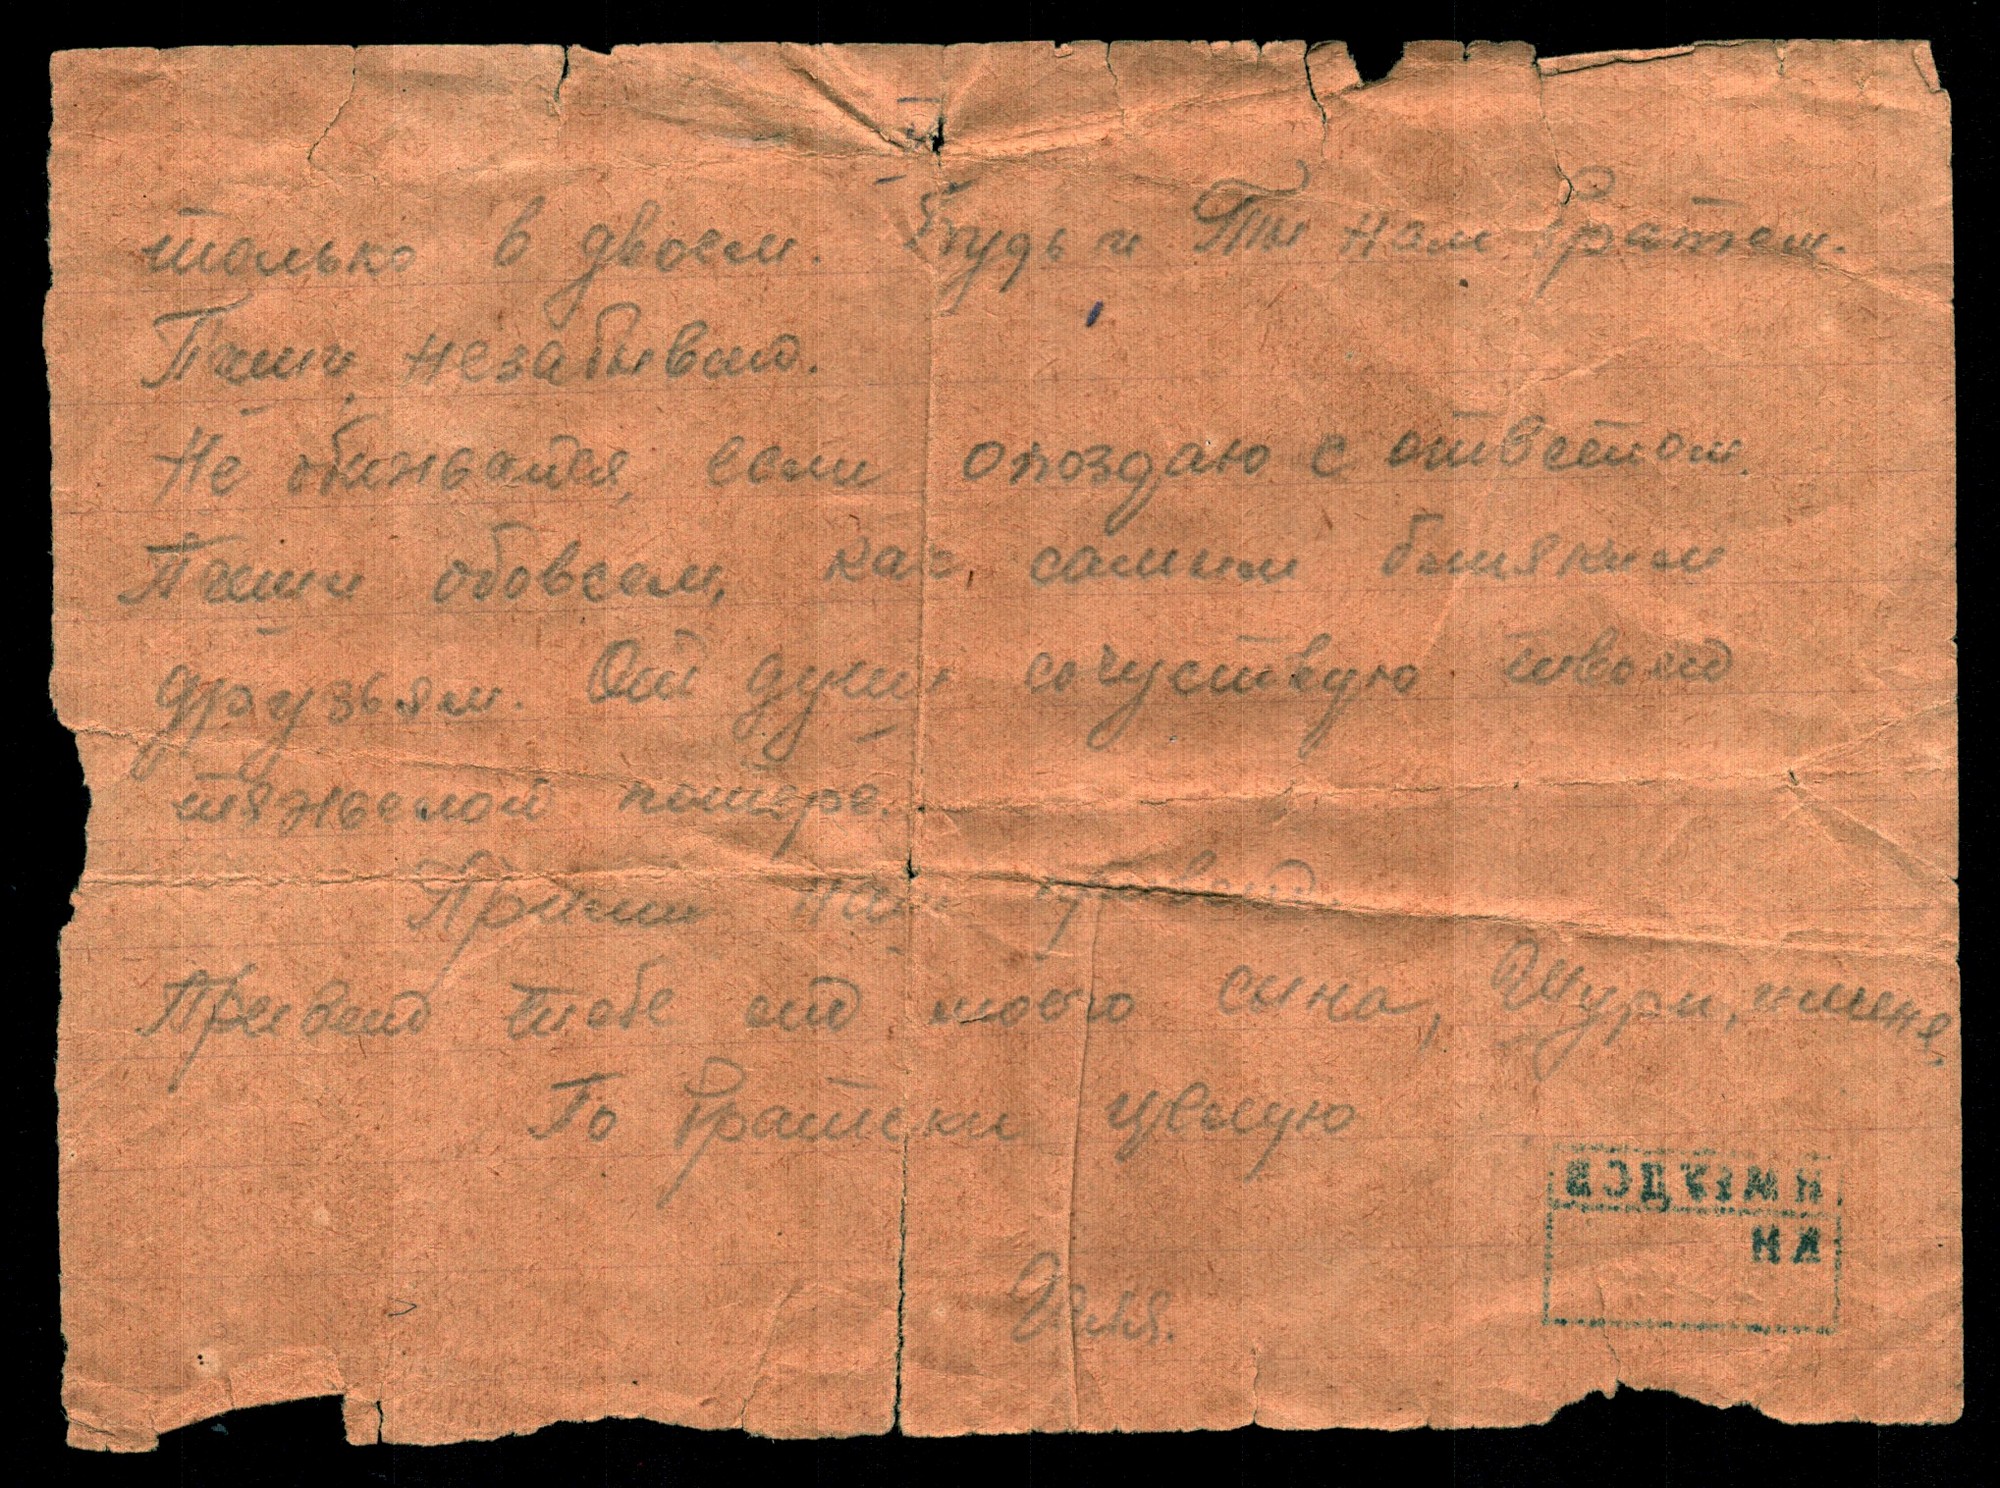 только в двоем. Будь и Ты нам братем.
Пиши, незабывай.
Не обижвайся, если опоздаю с ответом.
Пиши обовсем, как самым близким
друзьям. От души сочуствую твоей
тяжелой потере.
Прими наш привет.
Привет тебе от моего сина, Шури, имене.
По братски цкелую
Ваня.